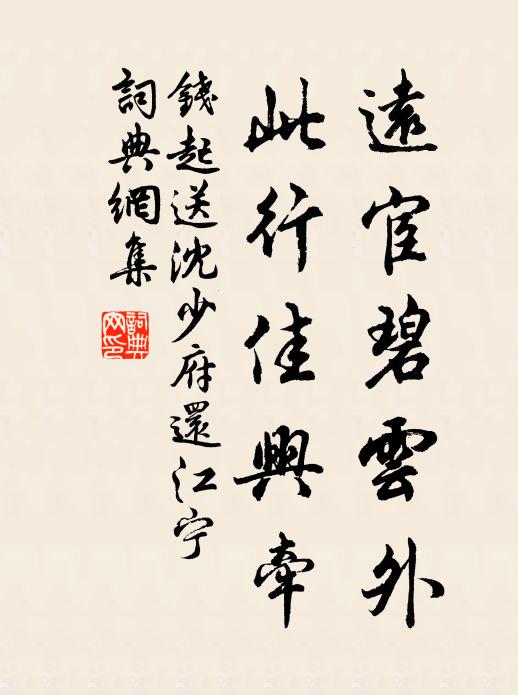 遠宦碧雲外
此行佳興牽
錢起送沈少府還江宁
詞典網集
詞典
网印